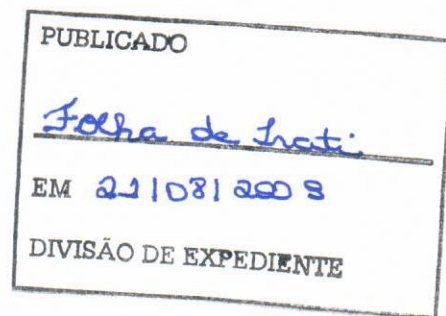 PUBLICADO
Folha de Irati
EM 21/08/2009
DIVISÃO DE EXPEDIENTE